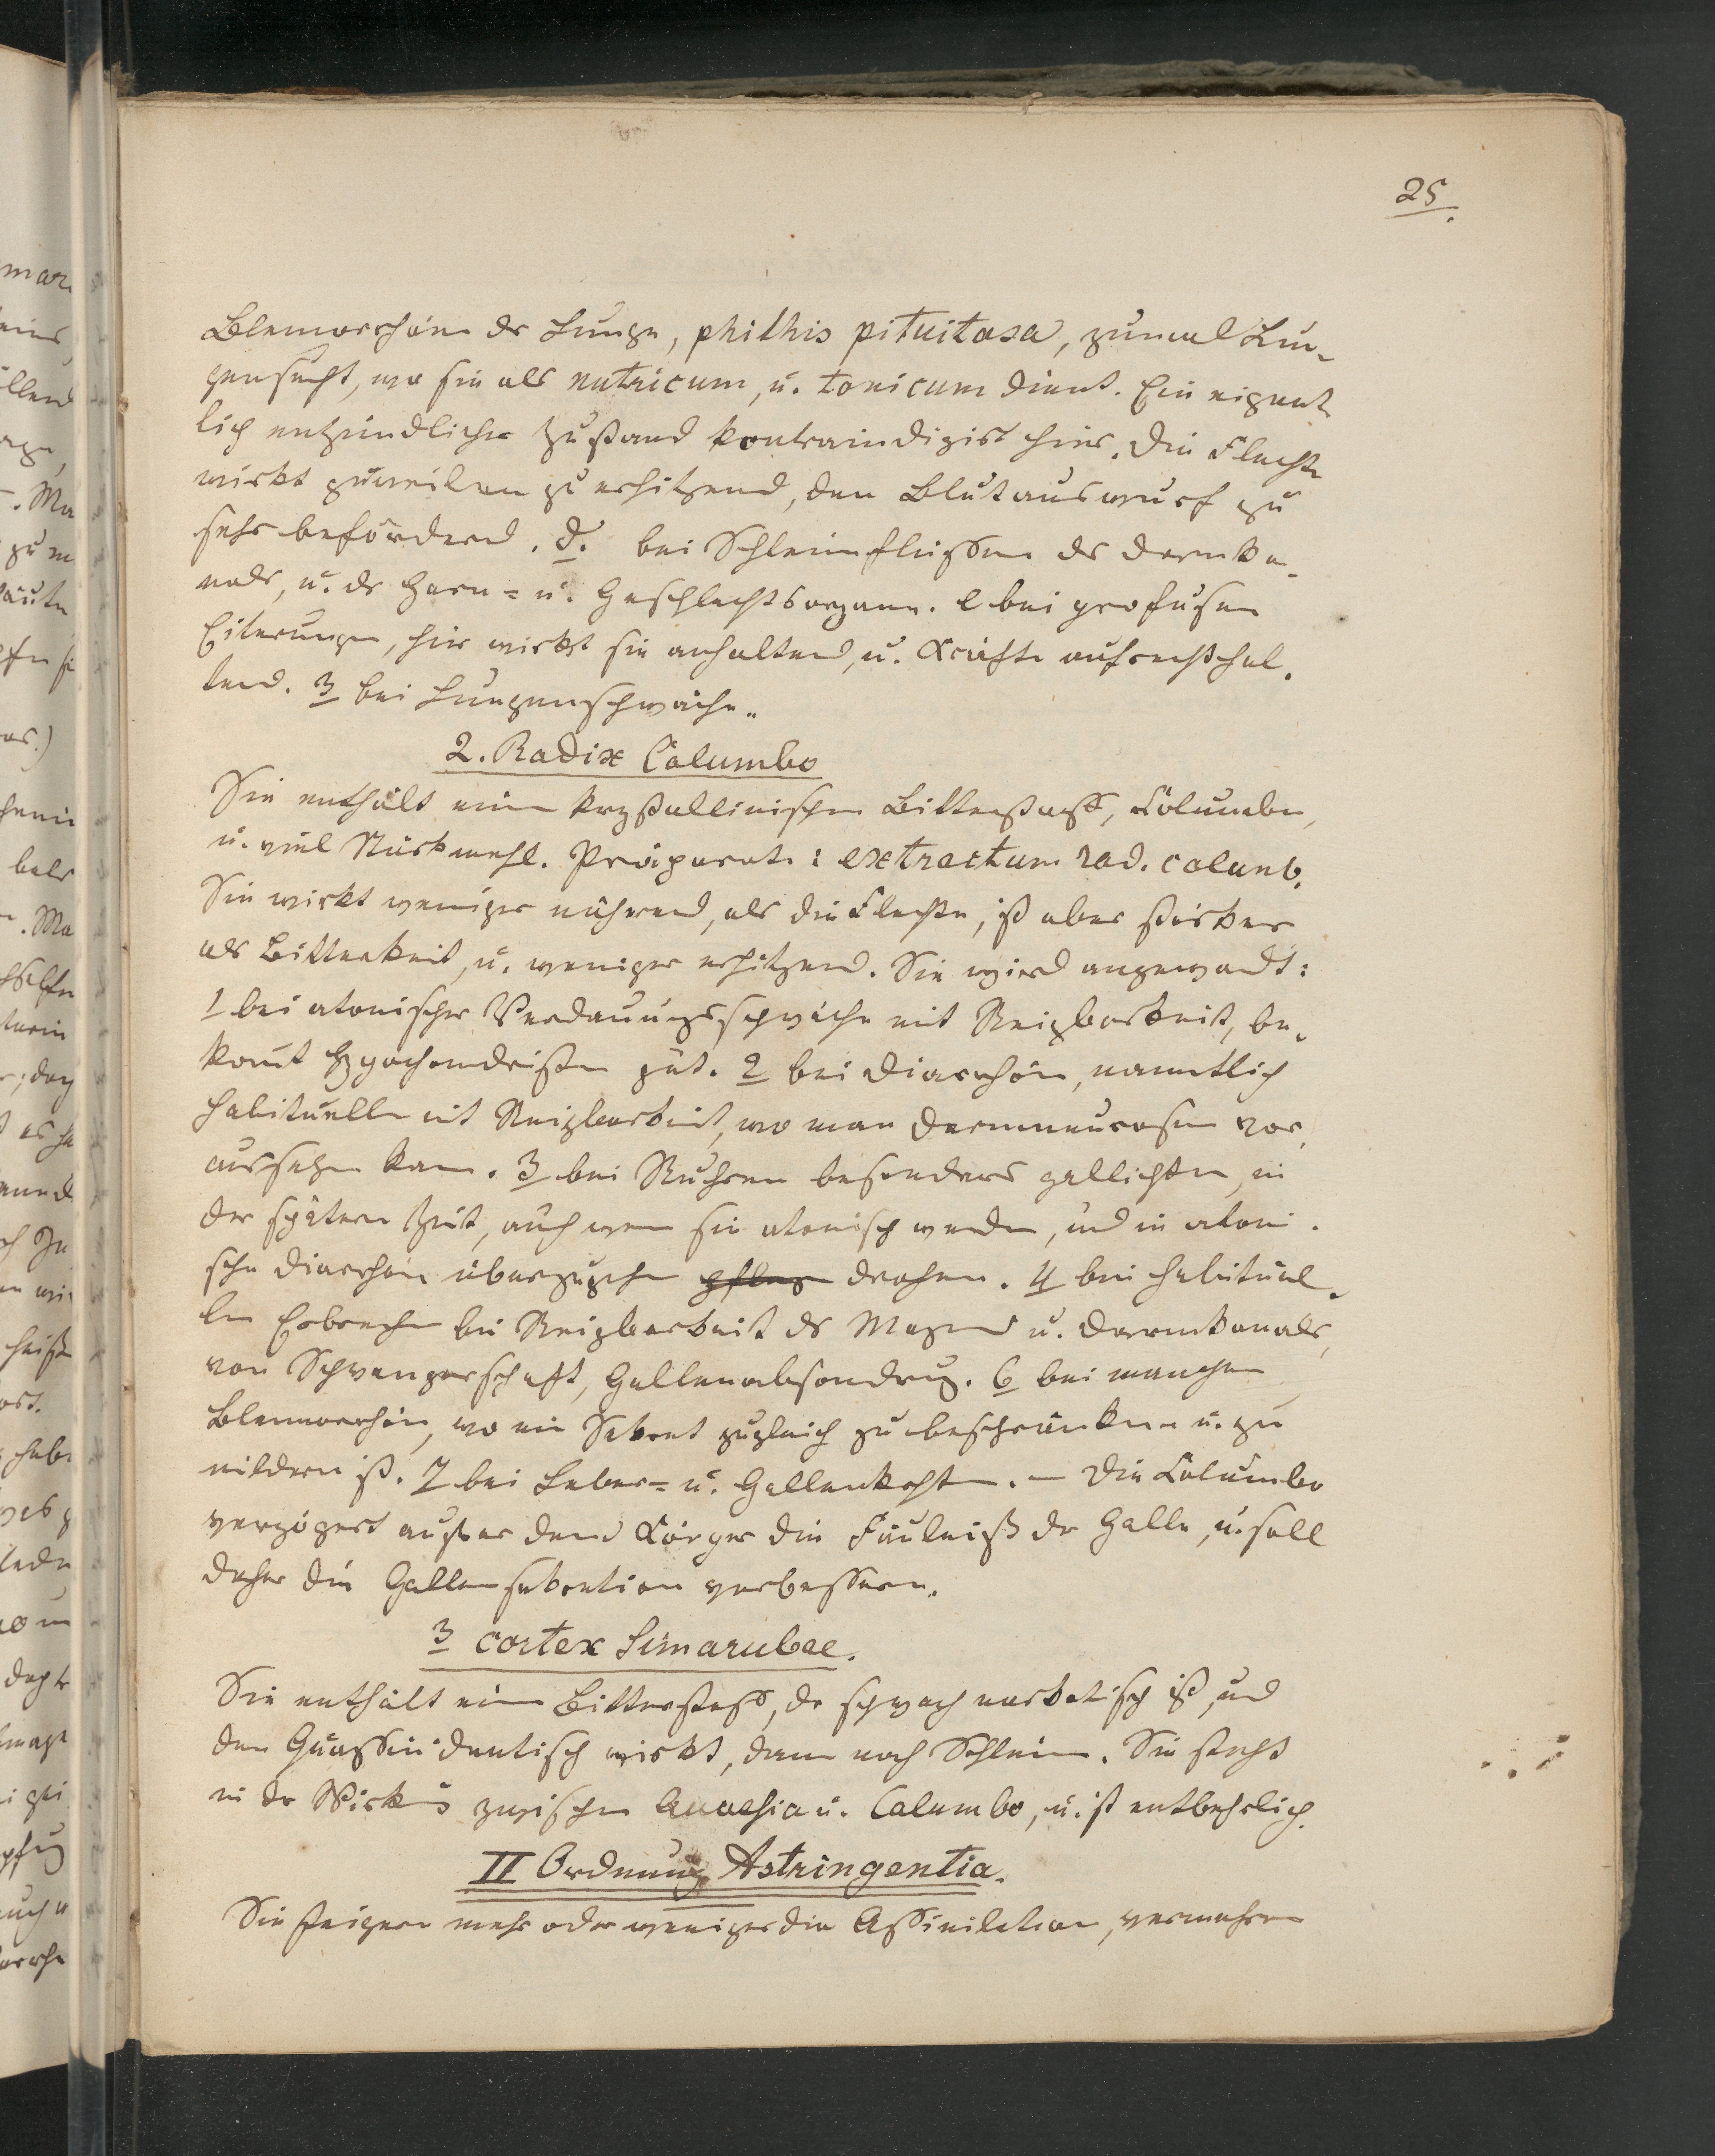 25.
Blenorrhöen der Lunge, phithis pituitosa, zumal Lun-
gensucht, wo sie als nutricum, u. tonicum dient. Ein eigent
lich entzündlicher Zustand kontraindizirt hier. Die Flechte
wirkt zuweilen zu erhitzend, den Blutauswurf zu
sehr befördernd. d. bei Schleimflüssen des Darmka-
nals, u. der Harn- u. Geschlechtsorgane. e bei profusen
Eiterungen, hier wirkt sie anhaltend, u. Kräfte aufrechthal-
tend. 3 bei Lungenschwäche.
2. Radix Columbo
Sie enthält einen krystallinischen Bitterstoff, Columbin,
u. viel Stärkmehl. Präparate: extractum rad. columb.
Sie wirkt weniger nährend, als die Flechte, ist aber stärker
als Bitterkeit, u. weniger erhitzend. Sie wird angewandt:
1 bei atonischer Verdauungsschwäche mit Reizbarkeit, be-
komt Hypochondristen gut. 2 bei Diarrhöen, namentlich
habituellen mit Reizbarkeit, wo man Darmneurosen vor-
aussetzen kann. 3 bei Ruhren besonders gallichten, in
der spätern Zeit, auch wenn sie atonisch werden, und in atoni-
sche Diarrhöen überzugehen pflegen drohen. 4 bei habituel-
len Erbrechen bei Reizbarkeit des Magens u. Darmkanals,
von Schwangerschaft, Gallenabsondrung. 6 bei manchen
Blennorrhöen, wo ein Sekret zugleich zu beschränken u. zu
mildern ist. 7 bei Leber- u. Gallenkrkhten. – Die Columbo
verzögert ausser dem Körper die Fäulniß der Galle, u. soll
daher die Gallensekretion verbessern.
3 cortex Simarubae.
Sie enthält einen Bitterstoff, der schwach narkotisch ist, und
dem Quassin identisch wirkt, dann noch Schleim. Sie steht
in der Wirkung zwischen Quassia u. Columbo, u. ist entbehrlich.
II Ordnung Astringentia.
Sie steigern mehr oder weniger die Assimilation, vermehren